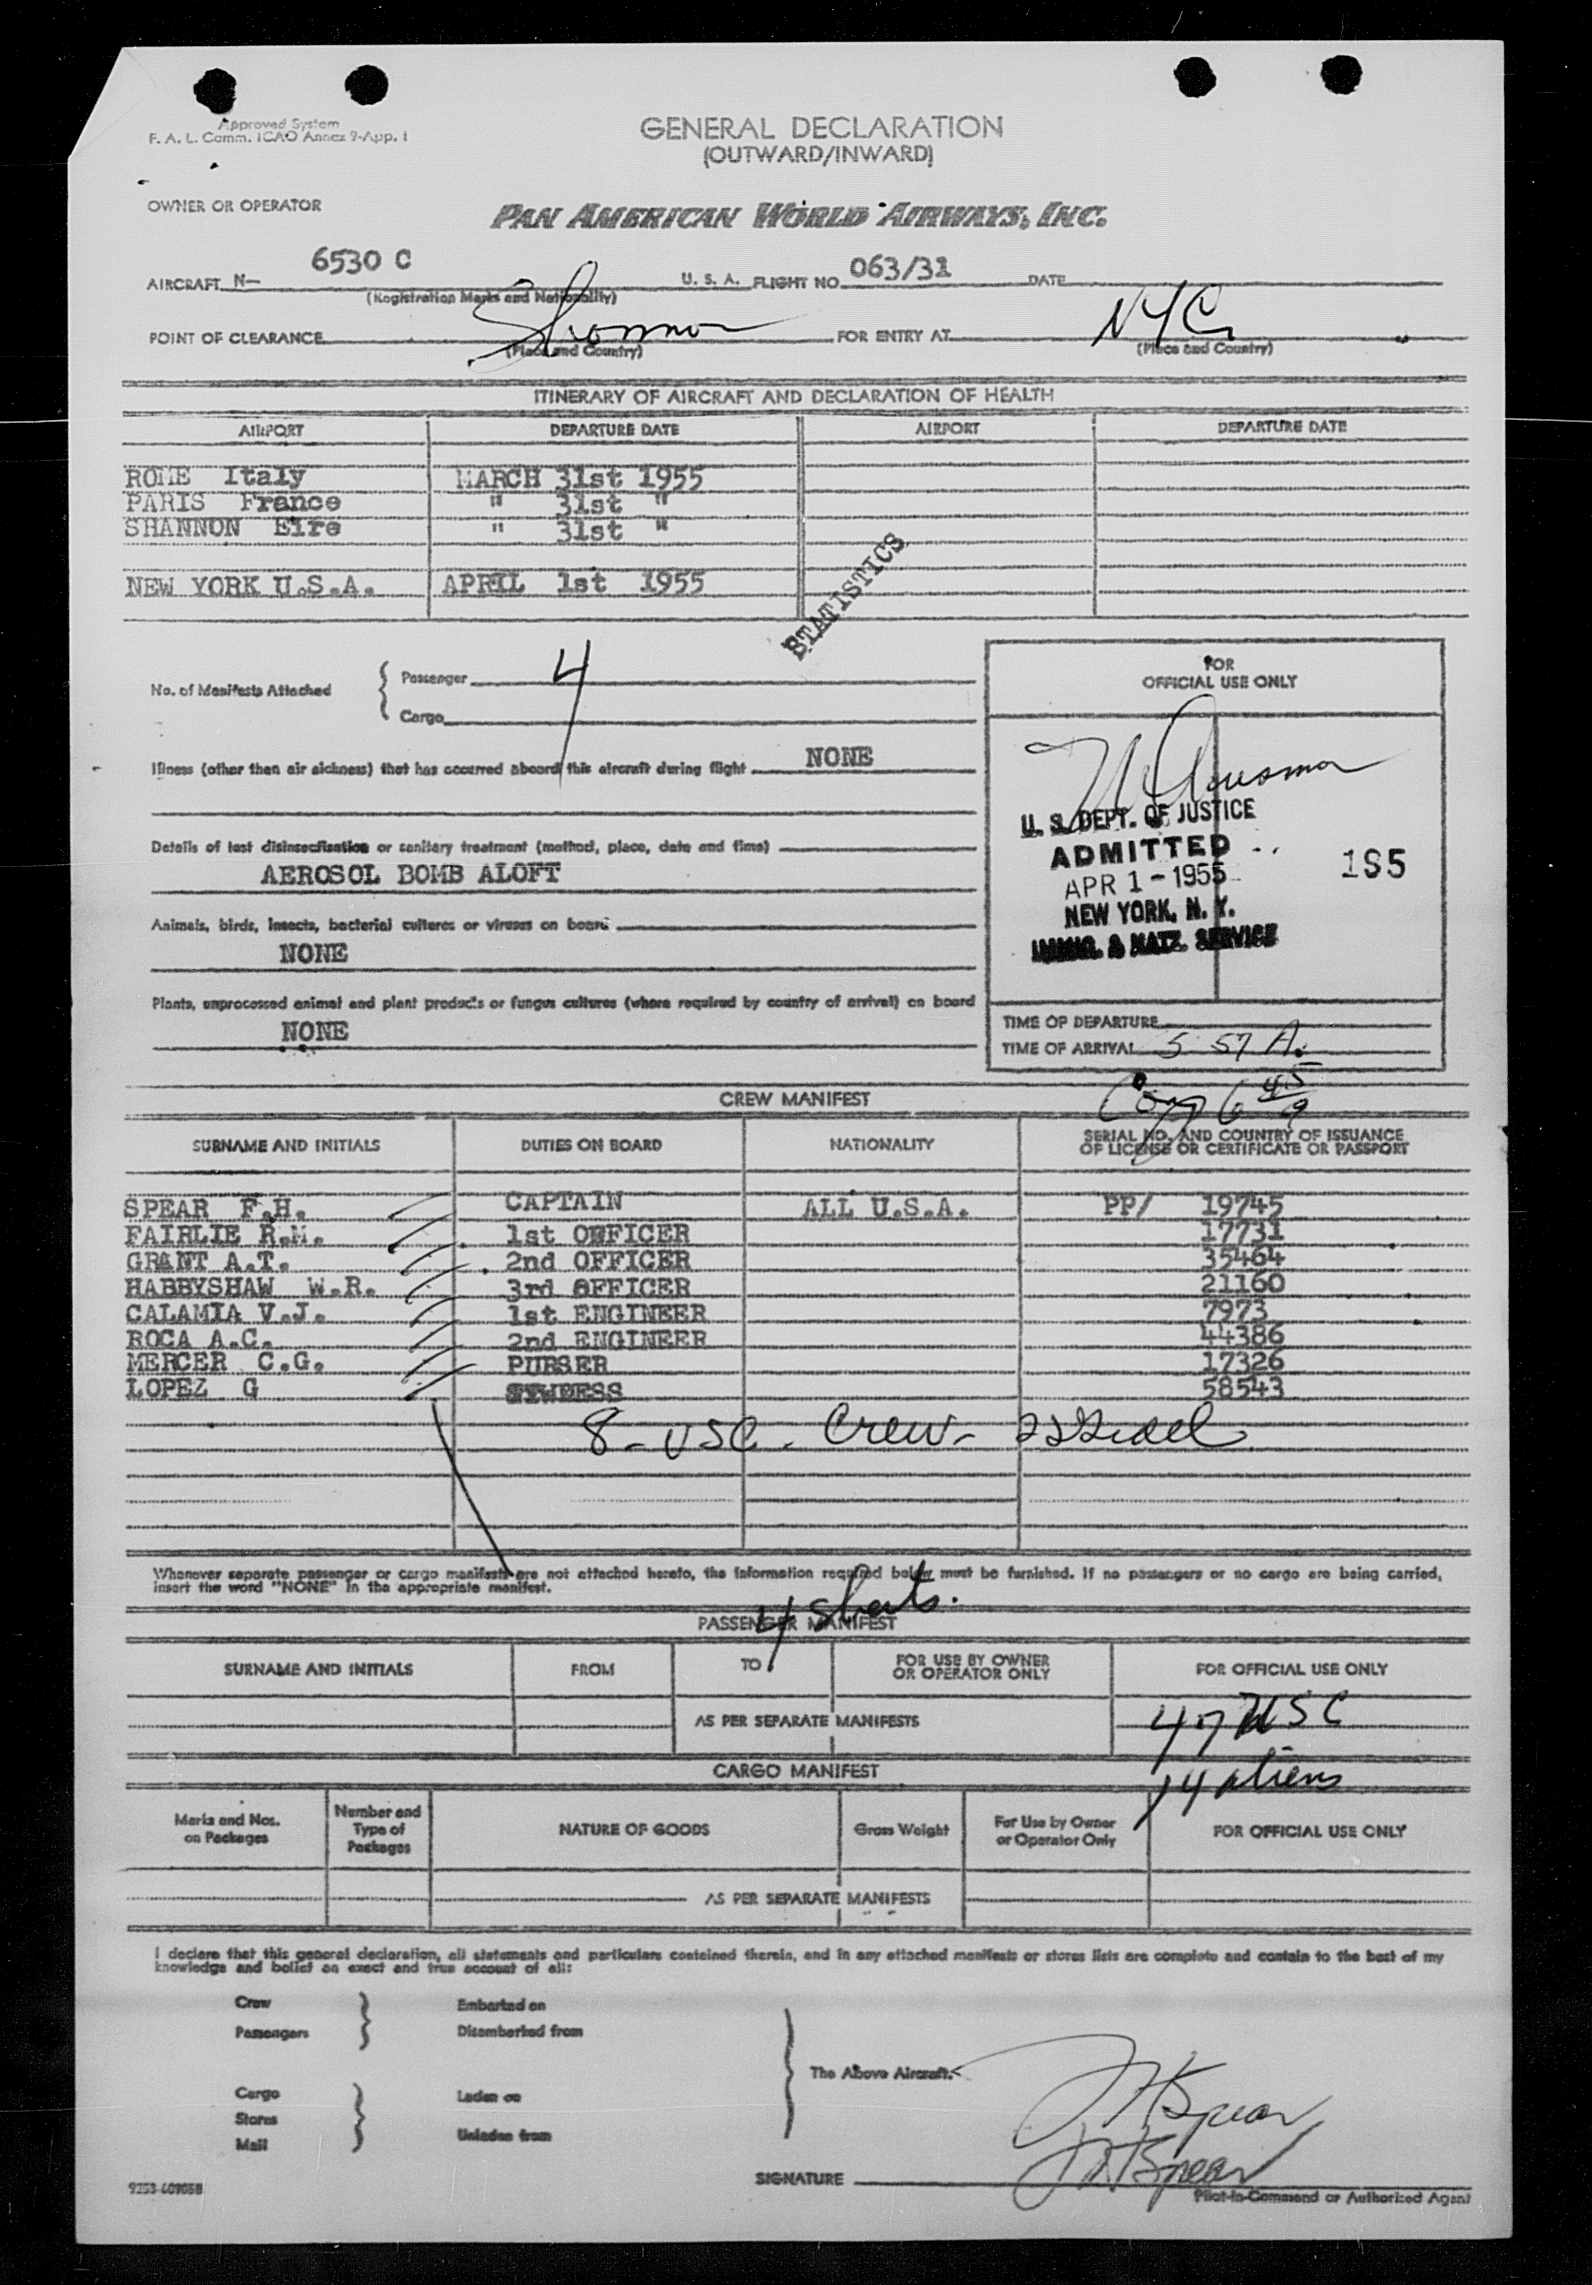 Approved System
F. A. L. Comm. ICAO Annex 9-App. 1
GENERAL DECLARATION
(OUTWARD/INWARD)
OWNER OR OPERATOR
PAN AMERICAN WORLD AIRWAYS, INC.
AIRCRAFT N— 6530 C U. S. A. FLIGHT NO. 063/31 DATE
(Registration Marks and Nationality)
POINT OF CLEARANCE Shannon FOR ENTRY AT NYC
(Place and Country) (Place and Country)
ITINERARY OF AIRCRAFT AND DECLARATION OF HEALTH
AIRPORT DEPARTURE DATE AIRPORT DEPARTURE DATE
ROME Italy MARCH 31st 1955
PARIS France " 31st "
SHANNON Eire " 31st "
NEW YORK U.S.A. APRIL 1st 1955
STATISTICS
No. of Manifests Attached { Passenger 4
Cargo
FOR
OFFICIAL USE ONLY
Illness (other than air sickness) that has occurred aboard this aircraft during flight NONE
U. S. DEPT. OF JUSTICE
ADMITTED
APR 1 - 1955
NEW YORK, N. Y.
IMMIG. & NATZ. SERVICE
195
Details of last disinsectisation or sanitary treatment (method, place, date and time)
AEROSOL BOMB ALOFT
Animals, birds, insects, bacterial cultures or viruses on board
NONE
Plants, unprocessed animal and plant products or fungus cultures (where required by country of arrival) on board
NONE
TIME OF DEPARTURE
TIME OF ARRIVAL 5 57 A.
6 45
CREW MANIFEST
SURNAME AND INITIALS DUTIES ON BOARD NATIONALITY SERIAL NO. AND COUNTRY OF ISSUANCE
OF LICENSE OR CERTIFICATE OR PASSPORT
SPEAR F.H. CAPTAIN ALL U.S.A. PP/ 19745
FAIRLIE R.M. 1st OFFICER 17731
GRANT A.T. 2nd OFFICER 35464
HABBYSHAW W.R. 3rd OFFICER 21160
CALAMIA V.J. 1st ENGINEER 7973
ROCA A.C. 2nd ENGINEER 44386
MERCER C.G. PURSER 17326
LOPEZ G STWDESS 58543
8 - USC - Crew -
Whenever separate passenger or cargo manifests are not attached hereto, the information required below must be furnished. If no passengers or no cargo are being carried,
insert the word "NONE" in the appropriate manifest.
4 Sheets.
PASSENGER MANIFEST
SURNAME AND INITIALS FROM TO FOR USE BY OWNER
OR OPERATOR ONLY FOR OFFICIAL USE ONLY
AS PER SEPARATE MANIFESTS
47 USC
14 aliens
CARGO MANIFEST
Marks and Nos.
on Packages Number and
Type of
Packages NATURE OF GOODS Gross Weight For Use by Owner
or Operator Only FOR OFFICIAL USE ONLY
AS PER SEPARATE MANIFESTS
I declare that this general declaration, all statements and particulars contained therein, and in any attached manifests or stores lists are complete and contain to the best of my
knowledge and belief an exact and true account of all:
Crew Embarked on
Passengers Disembarked from
The Above Aircraft.
Cargo Laden on
Stores
Mail Unladen from
FHSpear
FHSpear
SIGNATURE
Pilot-in-Command or Authorized Agent